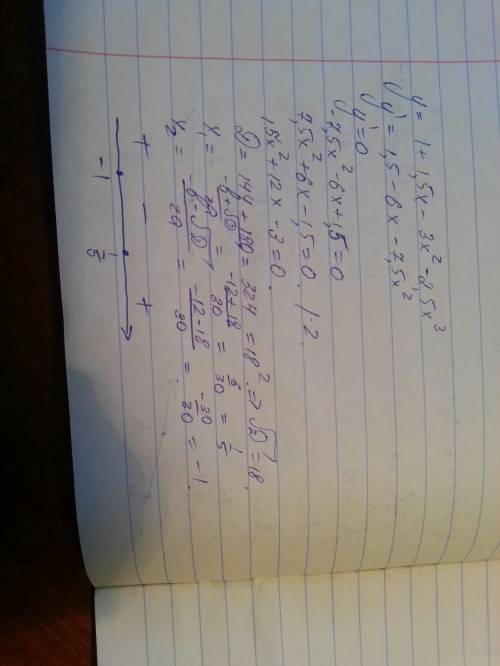 y = 1 + 1,5x - 3x² - 2,5x³
y' = 1,5 - 6x - 7,5x²
y' = 0
-7,5x² - 6x + 1,5 = 0
7,5x² + 6x - 1,5 = 0. | · 2.
15x² + 12x - 3 = 0.
D = 144 + 180 = 324 = 18² ⇒ √D = 18.
x₁ = (-b + √D)/2a = (-12 + 18)/30 = 6/30 = 1/5
x₂ = (-b - √D)/2a = (-12 - 18)/30 = -30/30 = -1.
+ - +
-1 1/5